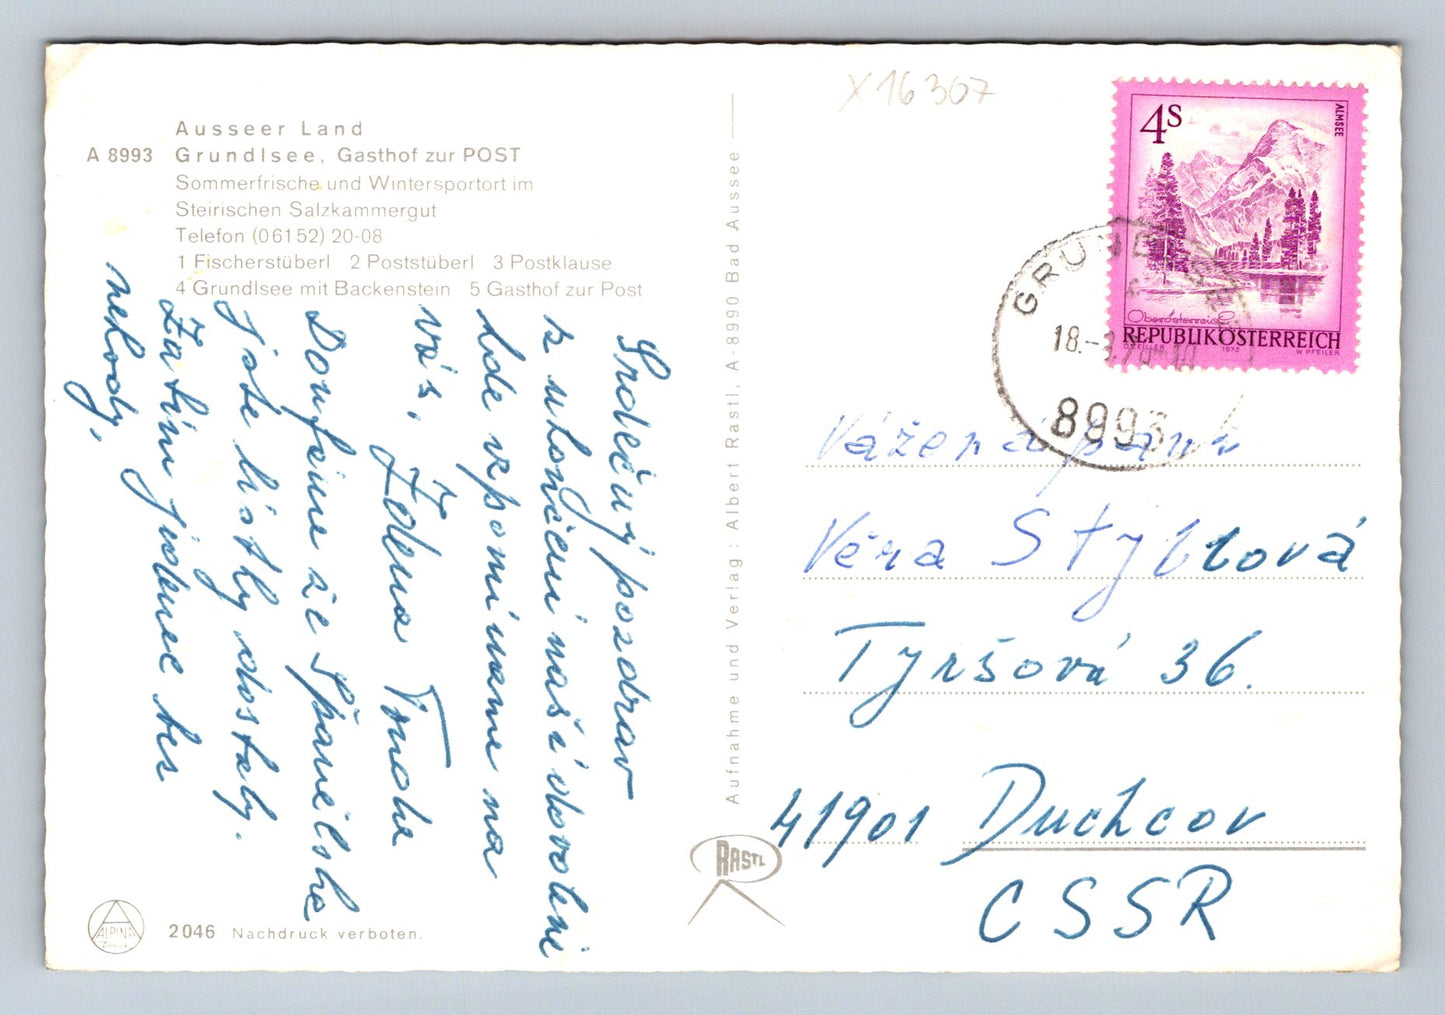 X 16307
Ausseer Land
A 8993 Grundlsee, Gasthof zur POST
Sommerfrische und Wintersportort im
Steirischen Salzkammergut
Telefon (06152) 20-08
1 Fischerstüberl 2 Poststüberl 3 Postklause
4 Grundlsee mit Backenstein 5 Gasthof zur Post
Srdečný pozdrav
z ukončení naší dovolené
kde vzpomínáme na
vás,
Zdena
Doufáme že Španělské
jste lístky dostaly.
Zatím jedeme bez
nehody,
Aufnahme und Verlag: Albert Rastl, A-8990 Bad Aussee
RASTL
ALPINA
2046 Nachdruck verboten.
4S
ALMSEE
Oberösterreich
REPUBLIK ÖSTERREICH
O. ZEILLER 1973 W. PFEILER
GRUNDLSEE
8993
Vážená paní
Věra Stýblová
Tyršová 36.
41901 Duchcov
CSSR